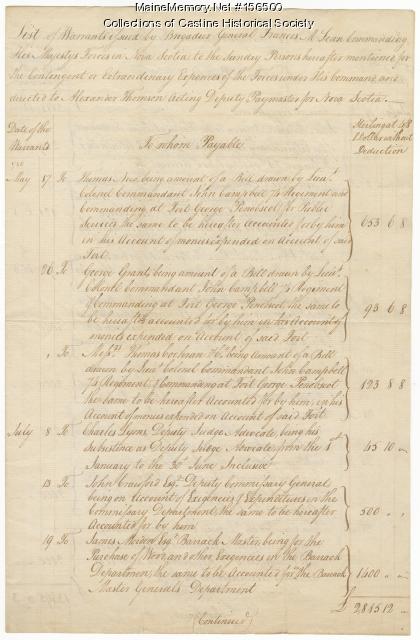 MaineMemory.Net #156500
Collections of Castine Historical Society
List of Warrants issued by Brigadier General Francis McLean Commanding
His Majestys Forces in Nova Scotia to the Sundry Persons hereafter mentioned for
the Contingent or extraordinary Expences of the Forces under His Command and
directed to Alexander Thomson Acting Deputy Paymaster for Nova Scotia.
Date of the Warrants
To whom Payable
Sterling at 4/8 Dollar without Deduction
May 17 To Thomas being amount of a Bill drawn by Lieut.
Colonel Commandant John Campbell 74 Regiment and
Commanding at Fort George Penobscot for Public
Services the same to be hereafter Accounted for by him
in his Account of monies expended on Account of said
Fort 653 6 8
26 To George Grant being amount of a Bill drawn by Lieut.
Colonel Commandant John Campbell 74 Regiment
& Commanding at Fort George Penobscot the same to
be hereafter accounted for by him in his Account of
monies expended on Account of said Fort 93 6 8
To Messrs. Thomas Cochran & Co. being Amount of a Bill
drawn by Lieut Colonel Commandant John Campbell
74 Regiment & Commanding at Fort George Penobscot
the same to be hereafter Accounted for by him, in his
Account of monies expended on Account of said Fort 123 8 8
July 8 To Charles Lyons Deputy Judge Advocate, being his
Subsistence as Deputy Judge Advocate, from the 1st
January to the 30th June Inclusive 45 10 "
13 To John Crauford Esqr. Deputy Commissary General
being on Account of Exigences & Expenditures in the
Commissary Department, the same to be hereafter
Accounted for by him 500 " "
19 To James Morden Esqr. Barrack Master, being for the
Purchase of Wood, and other Exigencies in the Barrack
Department, the same to be Accounted for the Barrack
Master Generals Department 1400 " "
£ 2815 12 "
(Continued)